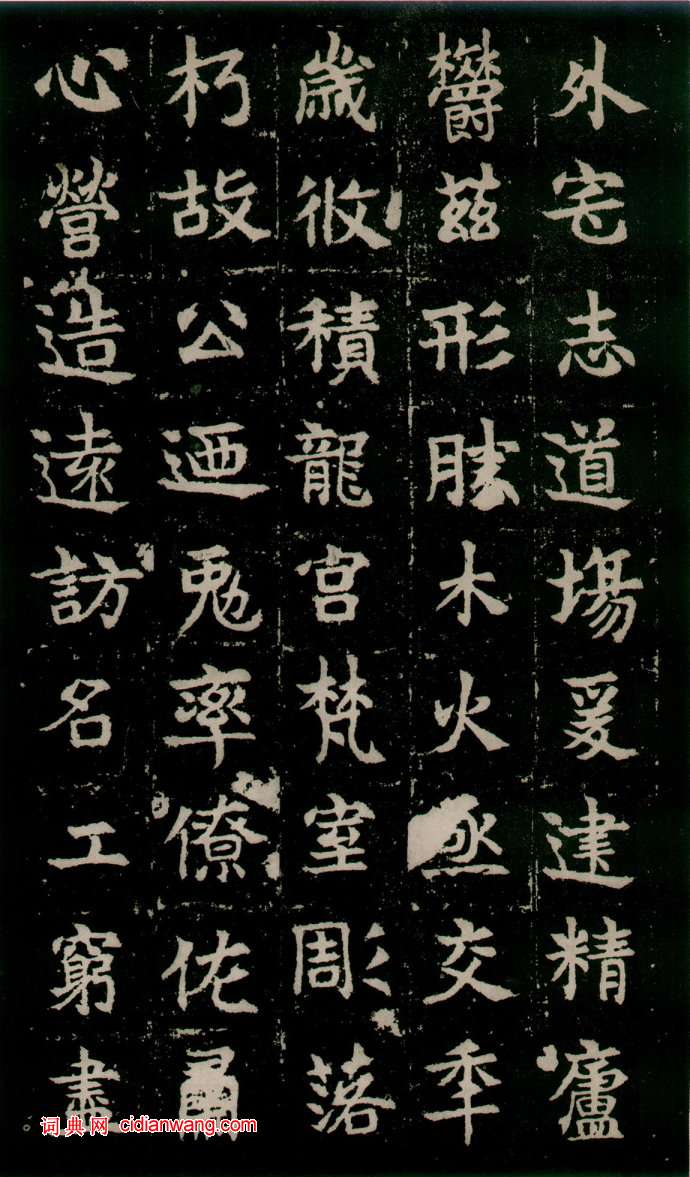 外宅志道塲爰建精廬
欝茲形勝木火亟交年
歲攸積龍宮梵室彫落
朽故公迺勉率僚佐
心營造遠訪名工窮盡
词典网 cidianwang.com